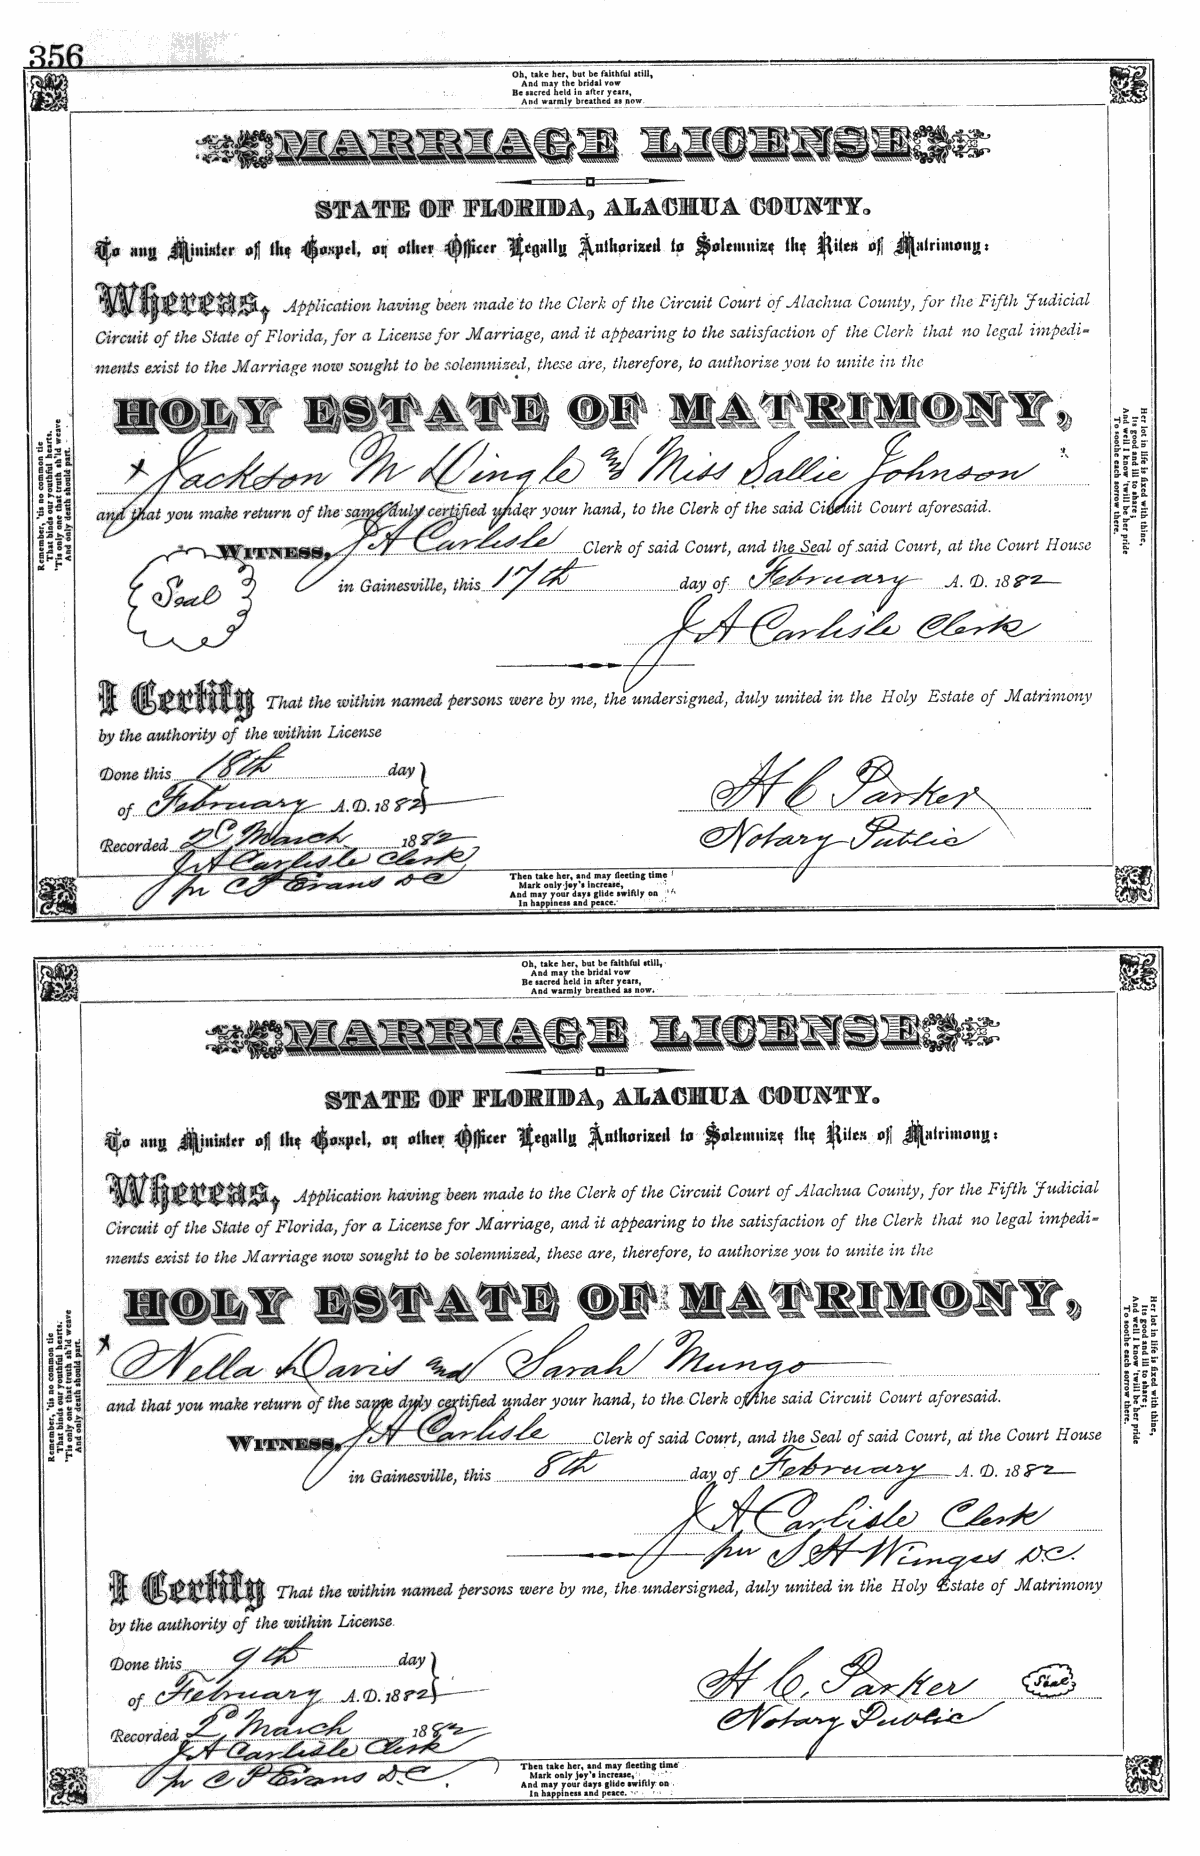 356
Oh, take her, but be faithful still,
And may the bridal vow
Be sacred held in after years,
And warmly breathed as now.
MARRIAGE LICENSE
STATE OF FLORIDA, ALACHUA COUNTY.
To any Minister of the Gospel, or other Officer Legally Authorized to Solemnize the Rites of Matrimony:
Whereas, Application having been made to the Clerk of the Circuit Court of Alachua County, for the Fifth Judicial
Circuit of the State of Florida, for a License for Marriage, and it appearing to the satisfaction of the Clerk that no legal impedi-
ments exist to the Marriage now sought to be solemnized, these are, therefore, to authorize you to unite in the
HOLY ESTATE OF MATRIMONY,
x Jackson M Dingle and Miss Sallie Johnson
and that you make return of the same duly certified under your hand, to the Clerk of the said Circuit Court aforesaid.
WITNESS, J A Carlisle Clerk of said Court, and the Seal of said Court, at the Court House
Seal
in Gainesville, this 17th day of February A. D. 1882
J A Carlisle Clerk
I Certify That the within named persons were by me, the undersigned, duly united in the Holy Estate of Matrimony
by the authority of the within License
Done this 18th day
of February A.D. 1882
H C Parker
Recorded 2d March 1882
Notary Public
J A Carlisle Clerk
pr C P Evans DC
Then take her, and may fleeting time
Mark only joy's increase,
And may your days glide swiftly on
In happiness and peace.
Remember, 'tis no common tie
That binds our youthful hearts.
'Tis only one that truth sh'ld weave
And only death should part.
Her lot in life is fixed with thine,
Its good and ill to share;
And well I know 'twill be her pride
To soothe each sorrow there.
Oh, take her, but be faithful still,
And may the bridal vow
Be sacred held in after years,
And warmly breathed as now.
MARRIAGE LICENSE
STATE OF FLORIDA, ALACHUA COUNTY.
To any Minister of the Gospel, or other Officer Legally Authorized to Solemnize the Rites of Matrimony:
Whereas, Application having been made to the Clerk of the Circuit Court of Alachua County, for the Fifth Judicial
Circuit of the State of Florida, for a License for Marriage, and it appearing to the satisfaction of the Clerk that no legal impedi-
ments exist to the Marriage now sought to be solemnized, these are, therefore, to authorize you to unite in the
HOLY ESTATE OF MATRIMONY,
x Nella Davis and Sarah Mungo
and that you make return of the same duly certified under your hand, to the Clerk of the said Circuit Court aforesaid.
WITNESS, J A Carlisle Clerk of said Court, and the Seal of said Court, at the Court House
in Gainesville, this 8th day of February A. D. 1882
J A Carlisle Clerk
per S H Wienges D.C.
I Certify That the within named persons were by me, the undersigned, duly united in the Holy Estate of Matrimony
by the authority of the within License.
Done this 9th day
of February A.D. 1882
H C. Parker Seal
Recorded 2d March 1882
Notary Public
J A Carlisle Clerk
pr C P Evans D.C.
Then take her, and may fleeting time
Mark only joy's increase,
And may your days glide swiftly on
In happiness and peace.
Remember, 'tis no common tie
That binds our youthful hearts.
'Tis only one that truth sh'ld weave
And only death should part.
Her lot in life is fixed with thine,
Its good and ill to share;
And well I know 'twill be her pride
To soothe each sorrow there.